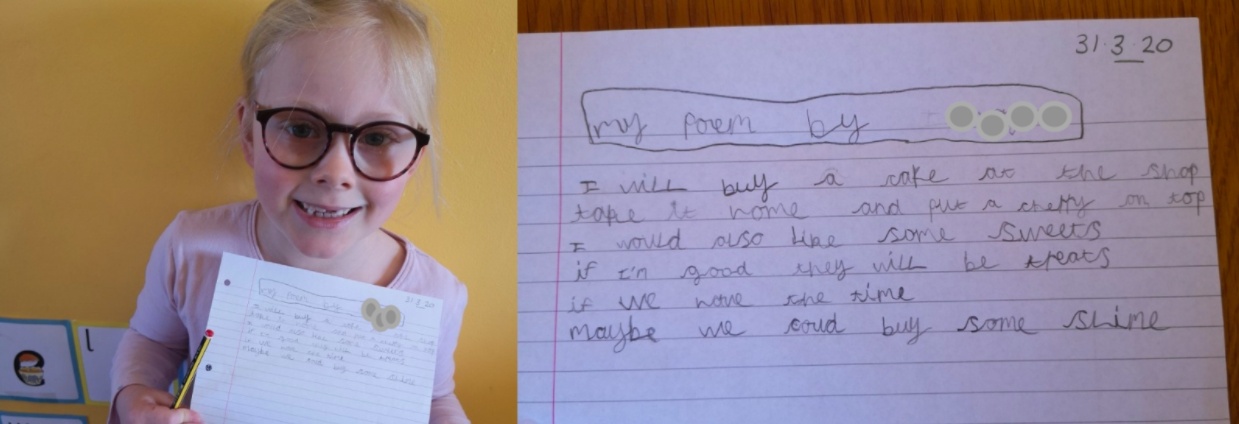 31.3.20
my poem by
I will buy a cake at the shop
take it home and put a cherry on top
I would also like some sweets
if I'm good they will be treats
if we have the time
maybe we coud buy some slime